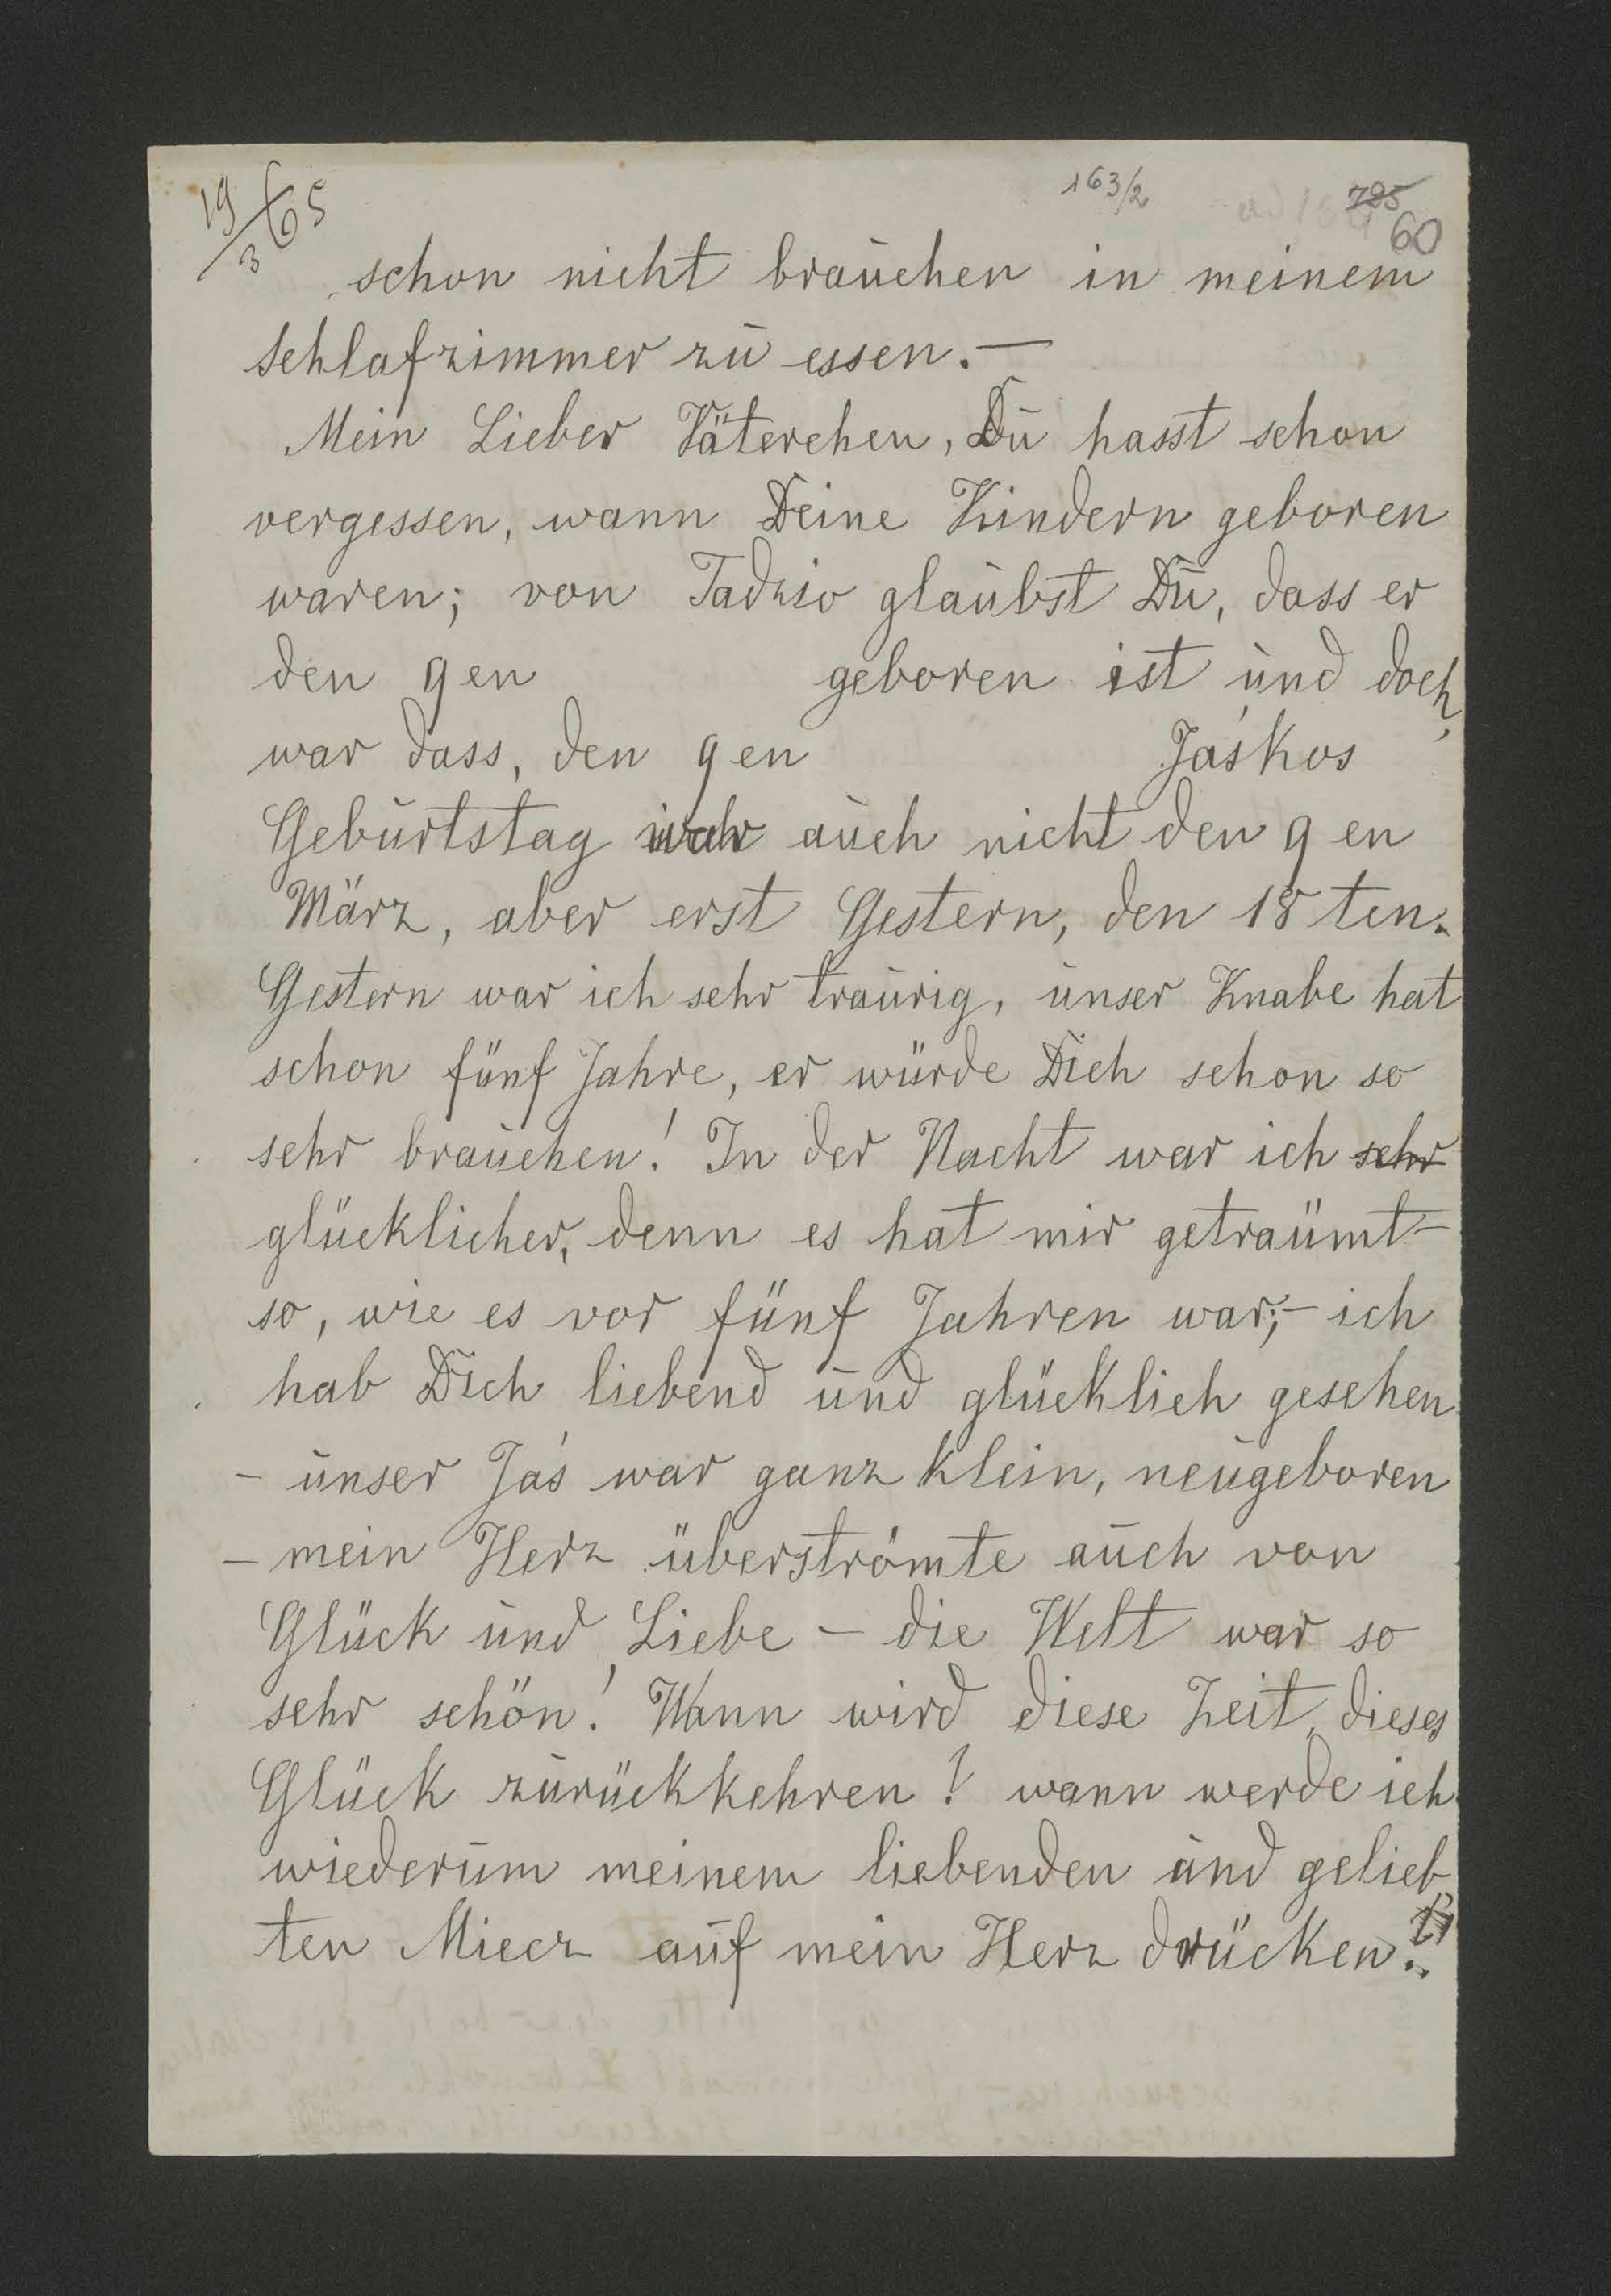 19/3 65
163/2
795
60
schon nicht brauchen in meinem
schlafzimmer zu essen. —
Mein Lieber Väterchen, Du hasst schon
vergessen, wann Deine Kindern geboren
waren; von Tadzio glaubst Du, dass er
den 9 en geboren ist und doch
war dass, den 9 en Jaśkos
Geburtstag war auch nicht den 9 en
März, aber erst Gestern, den 18 ten.
Gestern war ich sehr traurig, unser Knabe hat
schon fünf Jahre, er würde Dich schon so
sehr brauchen! In der Nacht war ich sehr
glücklicher, denn es hat mir geträumt –
so, wie es vor fünf Jahren war; – ich
hab Dich liebend und glücklich gesehen
– unser Jaś war ganz klein, neugeboren
– mein Herz überströmte auch von
Glück und Liebe – die Welt war so
sehr schön! Wann wird diese Zeit, dieses
Glück zurückkehren? wann werde ich
wiederum meinem liebenden und gelieb
ten Miecz auf mein Herz drücken..